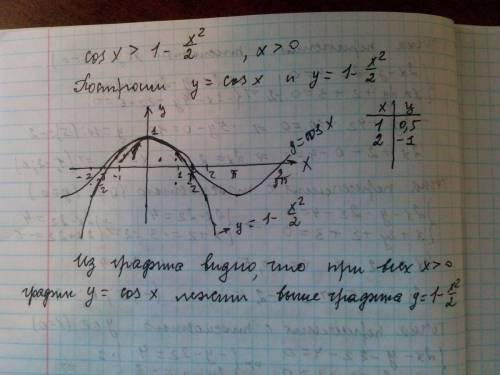 cos x > 1 - x²/2 , x > 0
Построим y = cos x и y = 1 - x²/2
y
x y
1 0,5
2 -1
1
y = cos x
x
-2 -1 1 2 π
y = 1 - x²/2
Из графика видно, что при всех x > 0
график y = cos x лежит выше графика y = 1 - x²/2